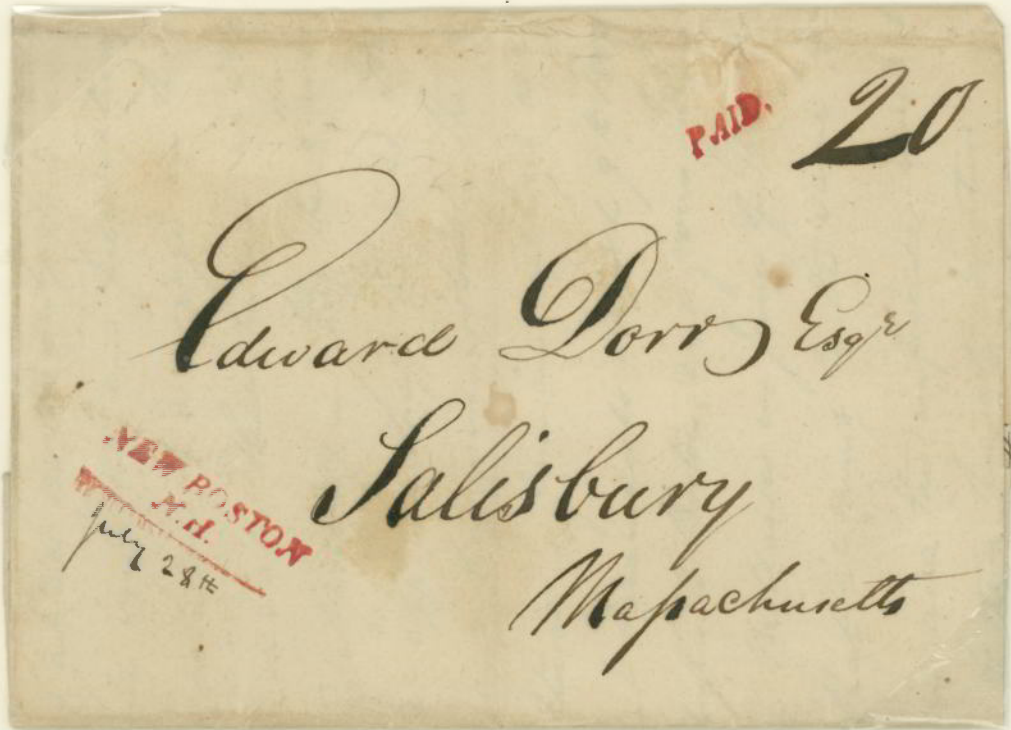 PAID. 20
Edward Dorr Esqr
Salisbury
Massachusetts
NEW BOSTON
N.H.
July 28th